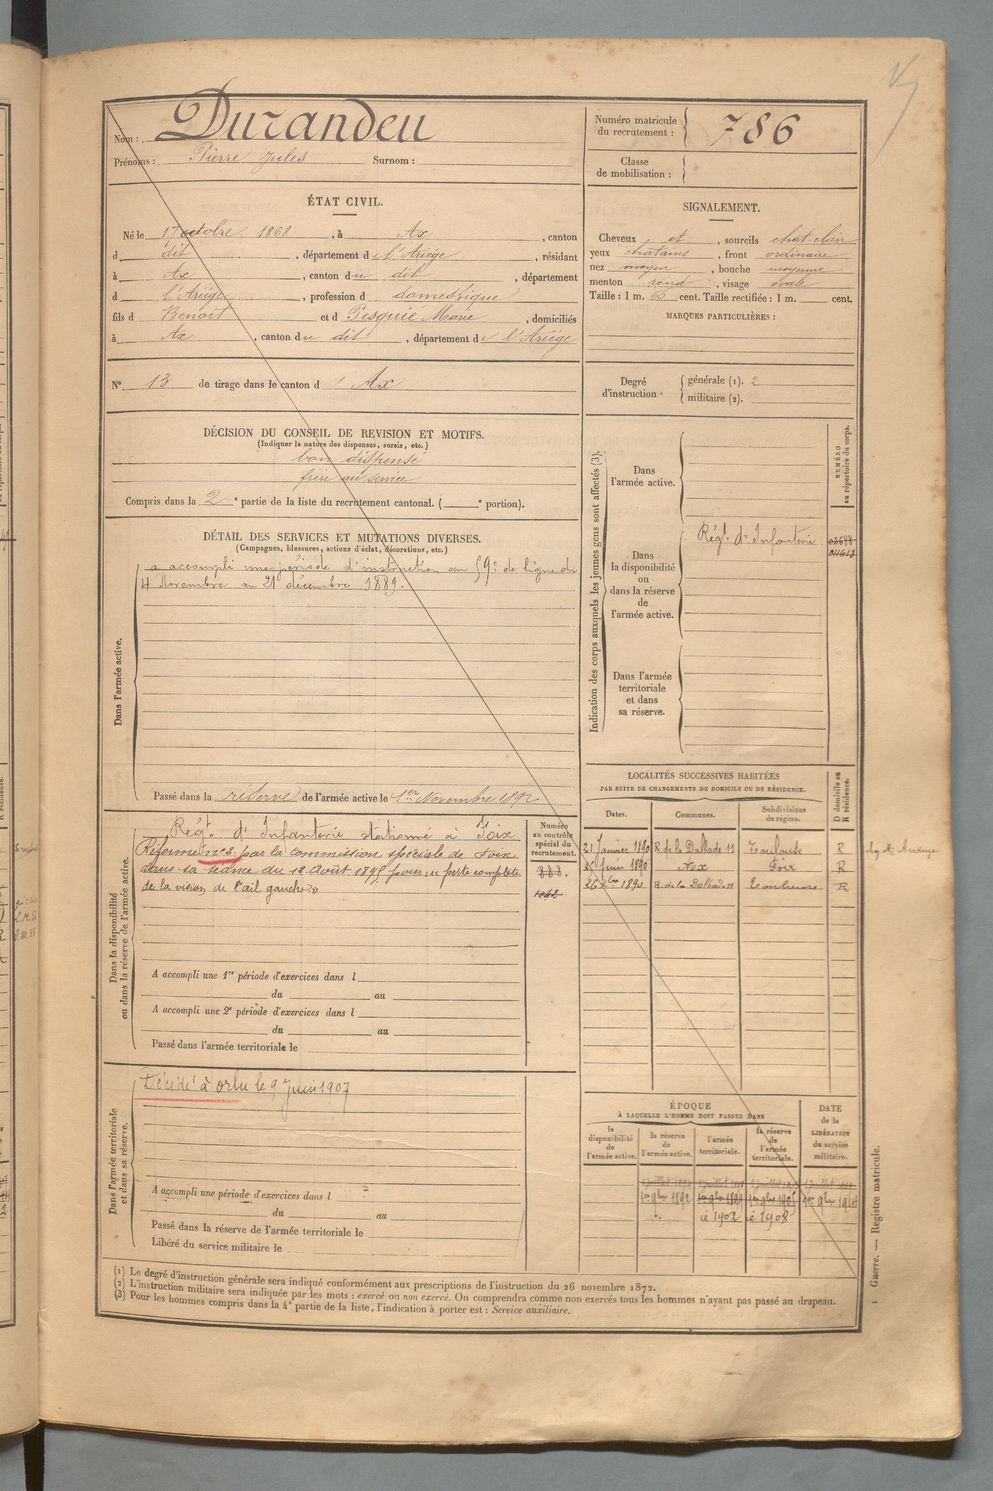 Nom : Durandeu
Prénoms : Pierre Jules Surnom :
Numéro matricule du recrutement : 786
Classe de mobilisation :
ÉTAT CIVIL.
Né le 17 octobre 1868, à Ax, canton
d dit, département de l'Ariège, résidant
à Ax, canton du dit, département
d l'Ariège, profession d domestique
fils d Benoit et d Pesquié Marie, domiciliés
à Ax, canton du dit, département de l'Ariège
N° 13 de tirage dans le canton d' Ax
SIGNALEMENT.
Cheveux et, sourcils chat-clair
yeux chatains, front ordinaire
nez moyen, bouche moyenne
menton rond, visage ovale
Taille : 1 m. 6 cent. Taille rectifiée : 1 m. cent.
MARQUES PARTICULIÈRES :
Degré d'instruction. générale (1). 2
militaire (2).
DÉCISION DU CONSEIL DE REVISION ET MOTIFS.
(Indiquer la nature des dispenses, sursis, etc.)
bon dispensé
frère au service
Compris dans la 2e partie de la liste du recrutement cantonal. ( e portion).
DÉTAIL DES SERVICES ET MUTATIONS DIVERSES.
(Campagnes, blessures, actions d'éclat, décorations, etc.)
Dans l'armée active.
a accompli une période d'instruction au 59e de ligne du
4 Novembre au 21 décembre 1889.
Passé dans la réserve de l'armée active le 1er Novembre 1892
Indication des corps auxquels les jeunes gens sont affectés (3).
NUMÉRO au répertoire du corps.
Dans l'armée active.
Dans la disponibilité ou dans la réserve de l'armée active.
Régt. d'Infanterie
Dans l'armée territoriale et dans sa réserve.
Dans la disponibilité ou dans la réserve de l'armée active.
Numéro au contrôle spécial du recrutement.
Régt. d'Infanterie stationné à Foix
Réformé n°2 par la commission spéciale de Foix
dans sa séance du 12 Août 1895 pour : perte complète
de la vision de l'œil gauche
1062
A accompli une 1re période d'exercices dans l
du au
A accompli une 2e période d'exercices dans l
du au
Passé dans l'armée territoriale le
LOCALITÉS SUCCESSIVES HABITÉES
PAR SUITE DE CHANGEMENTS DE DOMICILE OU DE RÉSIDENCE.
D domicile ou R résidence.
Dates. Communes. Subdivisions de région.
21 Janvier 1890 R. de la Dalbade 11 Toulouse R
Juin 1890 Ax Foix R
26 1890 R. de la Dalbade 11 Toulouse R
Dans l'armée territoriale et dans sa réserve.
Décédé à Orlu le 9 Juin 1907
A accompli une période d'exercices dans l
du au
Passé dans la réserve de l'armée territoriale le
Libéré du service militaire le
ÉPOQUE
À LAQUELLE L'HOMME DOIT PASSER DANS
la disponibilité de l'armée active.
la réserve de l'armée active.
l'armée territoriale.
la réserve de l'armée territoriale.
DATE de la LIBÉRATION du service militaire.
1er 9bre 1892
1903 1908
(1) Le degré d'instruction générale sera indiqué conformément aux prescriptions de l'instruction du 26 novembre 1872.
(2) L'instruction militaire sera indiquée par les mots : exercé ou non exercé. On comprendra comme non exercés tous les hommes n'ayant pas passé au drapeau.
(3) Pour les hommes compris dans la 4e partie de la liste, l'indication à porter est : Service auxiliaire.
1 Guerre. — Registre matricule.